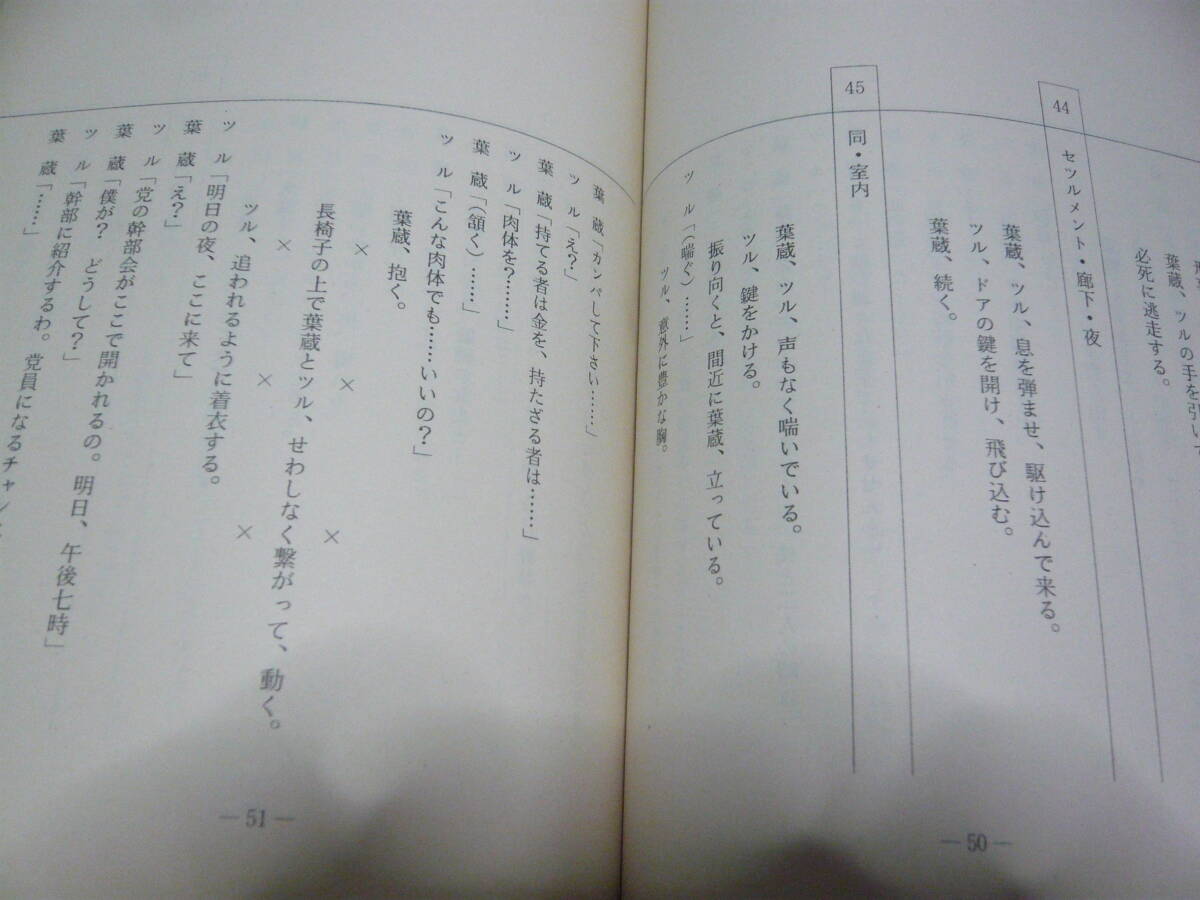 葉蔵、ツルの手を引いて
必死に逃走する。
44 セツルメント・廊下・夜
葉蔵、ツル、息を弾ませ、駆け込んで来る。
ツル、ドアの鍵を開け、飛び込む。
葉蔵、続く。
45 同・室内
葉蔵、ツル、声もなく喘いでいる。
ツル、鍵をかける。
振り向くと、間近に葉蔵、立っている。
ツル「(喘ぐ)……」
ツル、意外に豊かな胸。
— 50 —
葉蔵「カンパして下さい……」
ツル「え?」
葉蔵「持てる者は金を、持たざる者は……」
ツル「肉体を?……」
葉蔵「(頷く)……」
ツル「こんな肉体でも……いいの?」
葉蔵、抱く。
× × ×
長椅子の上で葉蔵とツル、せわしなく繋がって、動く。
× × ×
ツル、追われるように着衣する。
ツル「明日の夜、ここに来て」
葉蔵「え?」
ツル「党の幹部会がここで開かれるの。明日、午後七時」
葉蔵「僕が? どうして?」
ツル「幹部に紹介するわ。党員になるチャン
葉蔵「……」
— 51 —